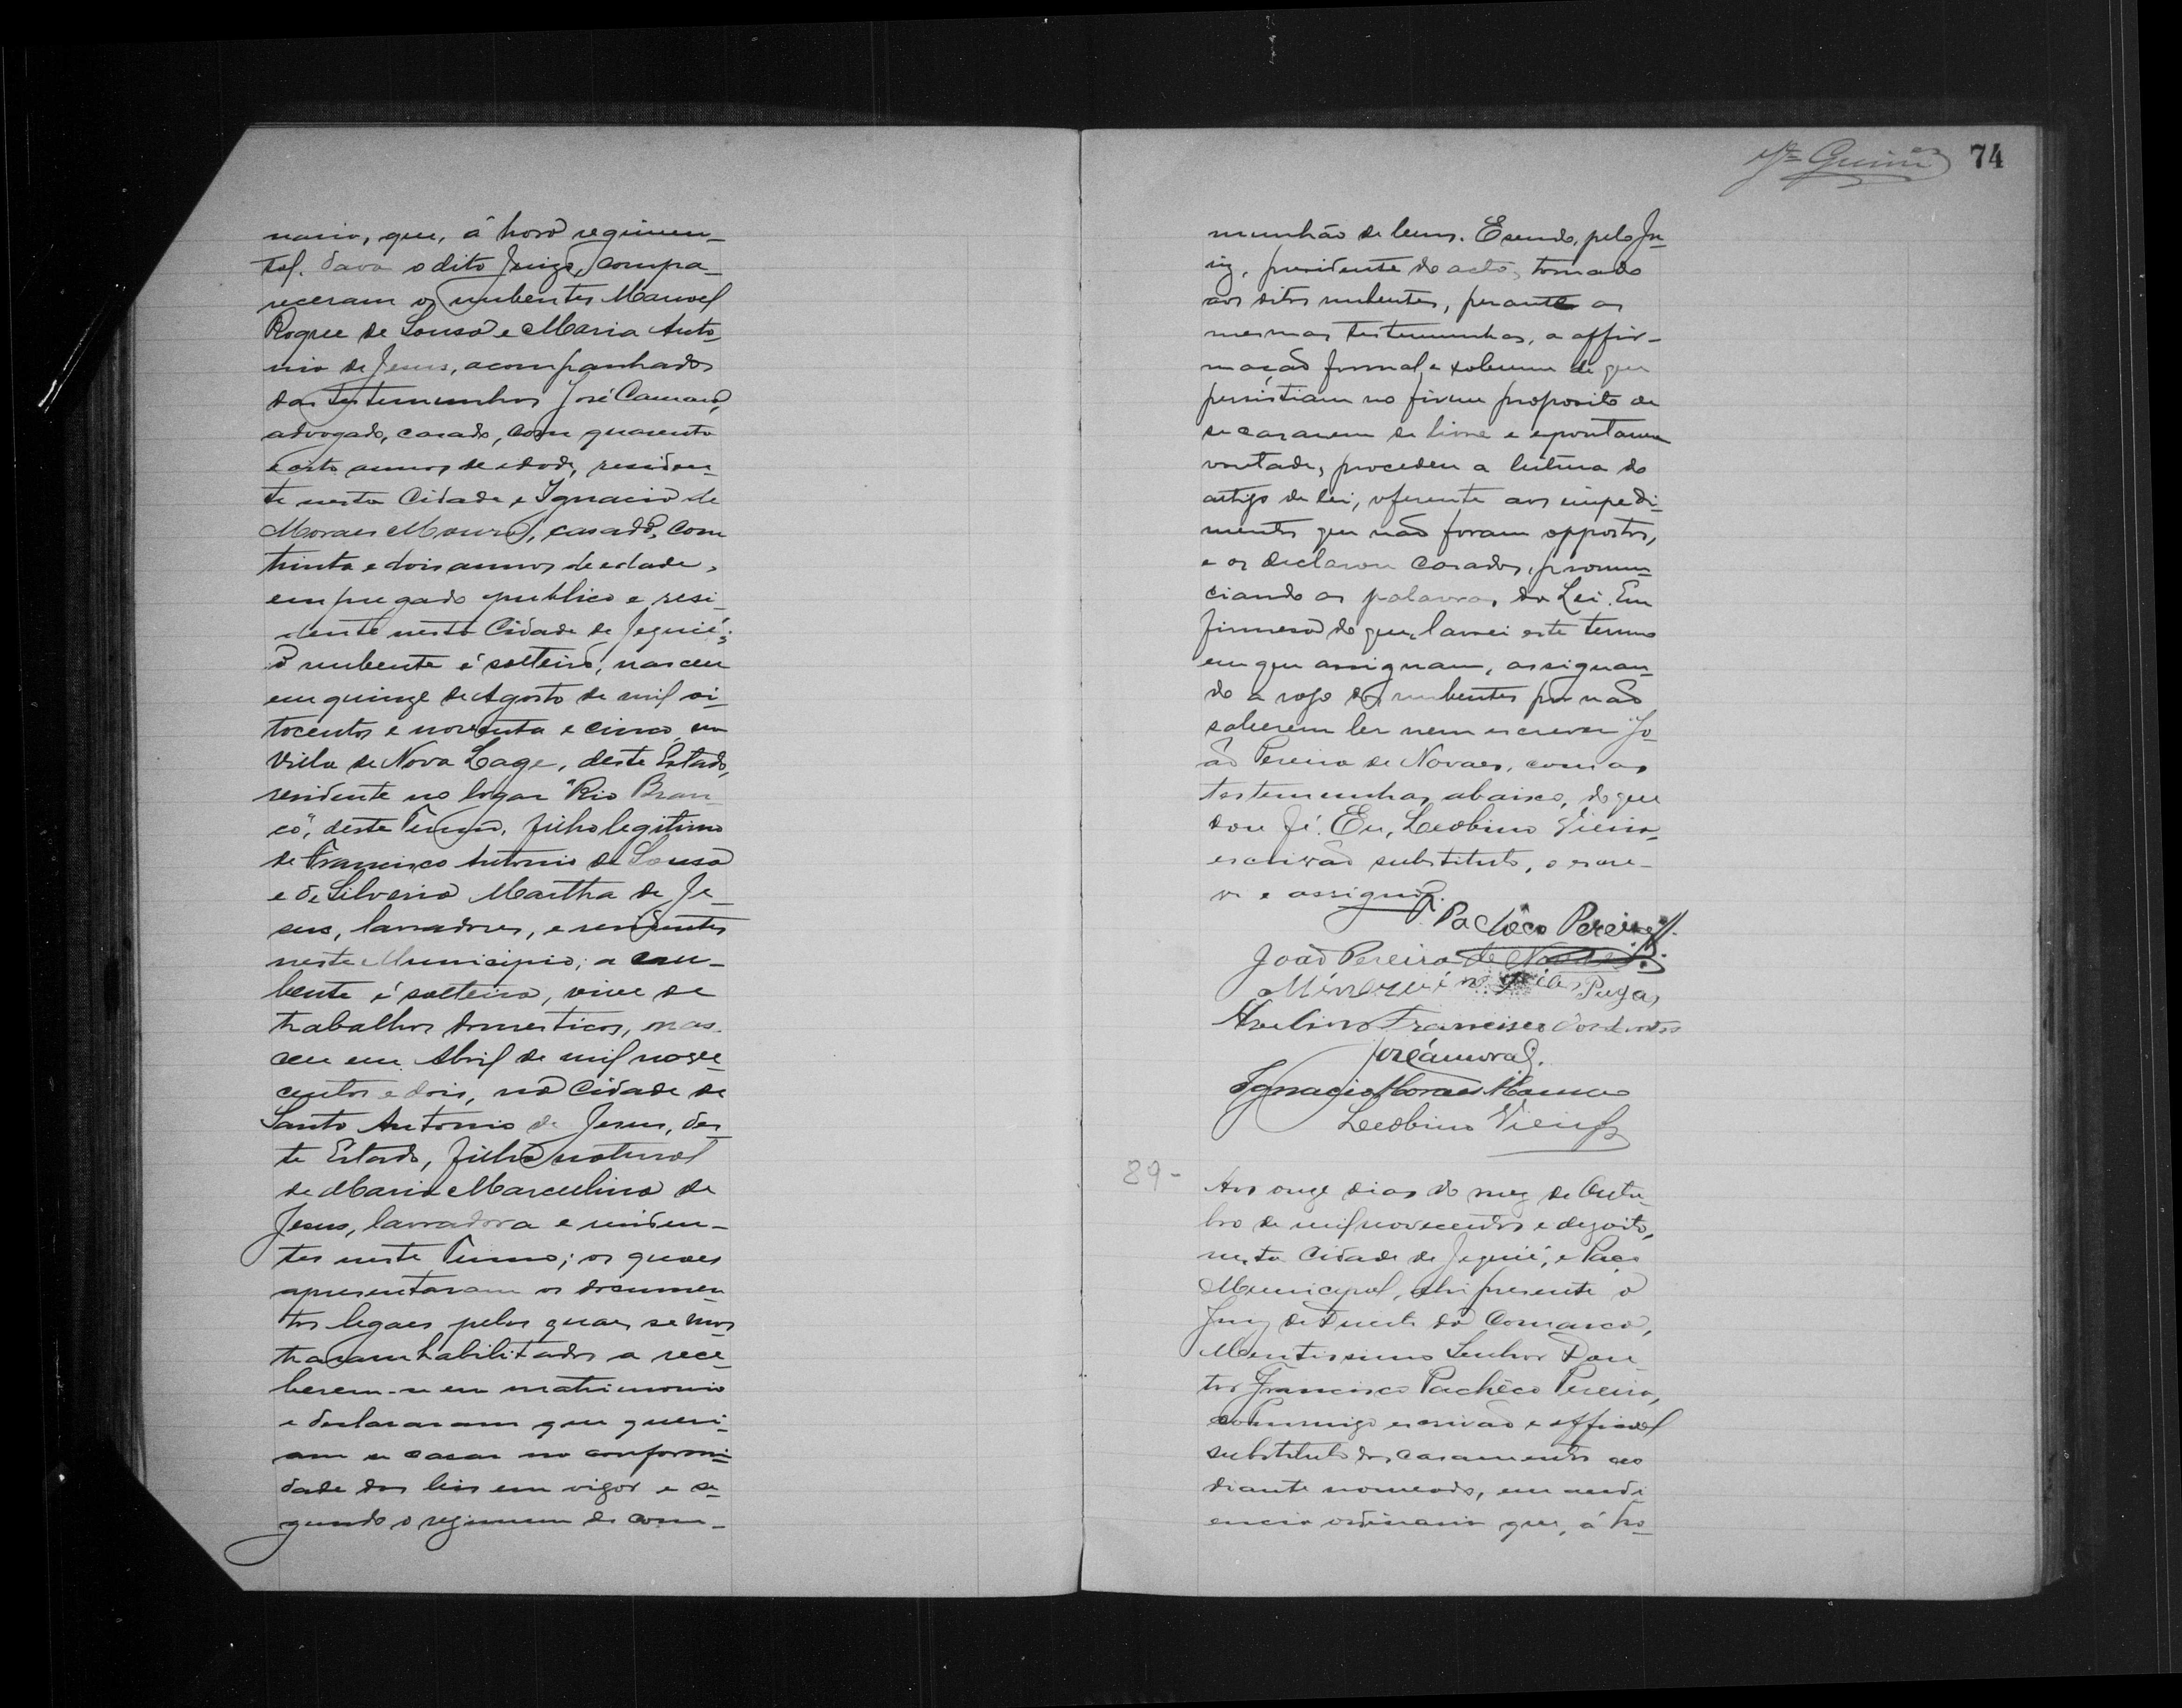 nario, que, á hora regimen-
tal dava o dito Juizo, compa-
receram os nubentes Manoel
Roque de Sousa e Maria Anto-
nia de Jesus, acompanhados
das testemunhas José
advogado, casado, com quarenta
e oito annos de edade, residen-
te nesta Cidade e Ignacio de
Moraes Moura, casado, com
trinta e dois annos de edade,
empregado publico e resi-
dente nesta Cidade de Jequié;
o nubente é solteiro, nasceu
em quinze de Agosto de mil oi-
tocentos e noventa e cinco, na
Villa de Nova Lage, deste Estado,
residente no logar "Rio Bran-
co", deste Termo, filho legitimo
de Francisco Antonio de Sousa
e de Silveria Martha de Je-
sus, lavradores, e residentes
neste Municipio; a nu-
bente é solteira, vive de
trabalhos domesticos, nas-
ceu em Abril de mil nove-
centos e dois, na Cidade de
Santo Antonio de Jesus, des-
te Estado, filha natural
de Maria Marculina de
Jesus, lavradora e residen-
tes neste Termo; os quaes
apresentaram os documen-
tos legaes pelos quaes se mos-
traram habilitados a rece-
berem-se em matrimonio
e declararam que queri-
am se casar na conformi-
dade das leis em vigor e se-
gundo o regimem de com-
74
munhão de bens. E sendo, pelo Ju-
iz, presidente do acto, tomado
aos ditos nubentes, perante as
mesmas testemunhas, a affir-
mação formal e solemne de que
persistiam no firme proposito de
se casarem de livre e espontanea
vontade, procedeu a leitura do
artigo da lei, referente aos impedi-
mentos que não foram oppostos,
e os declarou casados, pronun-
ciando as palavras da Lei. Em
firmesa do que, lavrei este termo
em que assignam, assignan-
do a rogo dos nubentes por não
saberem ler nem escrever Jo-
ão Pereira de Novaes, com as
testemunhas abaixo, do que
dou fé. Eu, Leobino Vieira,
escrivão substituto, o escre-
vi e assigno.
Pachêco Pereira
João Pereira de Novaes
Avelino Francisco dos Santos
Ignacio Moraes Moura
Leobino Vieira
89-
Aos onze dias do mez de Outu-
bro de mil novecentos e dezoito,
nesta Cidade de Jequié, e Paço
Municipal, ahi presente o
Juiz de Direito da Comarca,
Meritissimo Senhor Dou-
tor Francisco Pachêco Pereira,
commigo escrivão e official
substituto dos casamentos ao
diante nomeado, em audi-
encia ordinaria que, á ho-